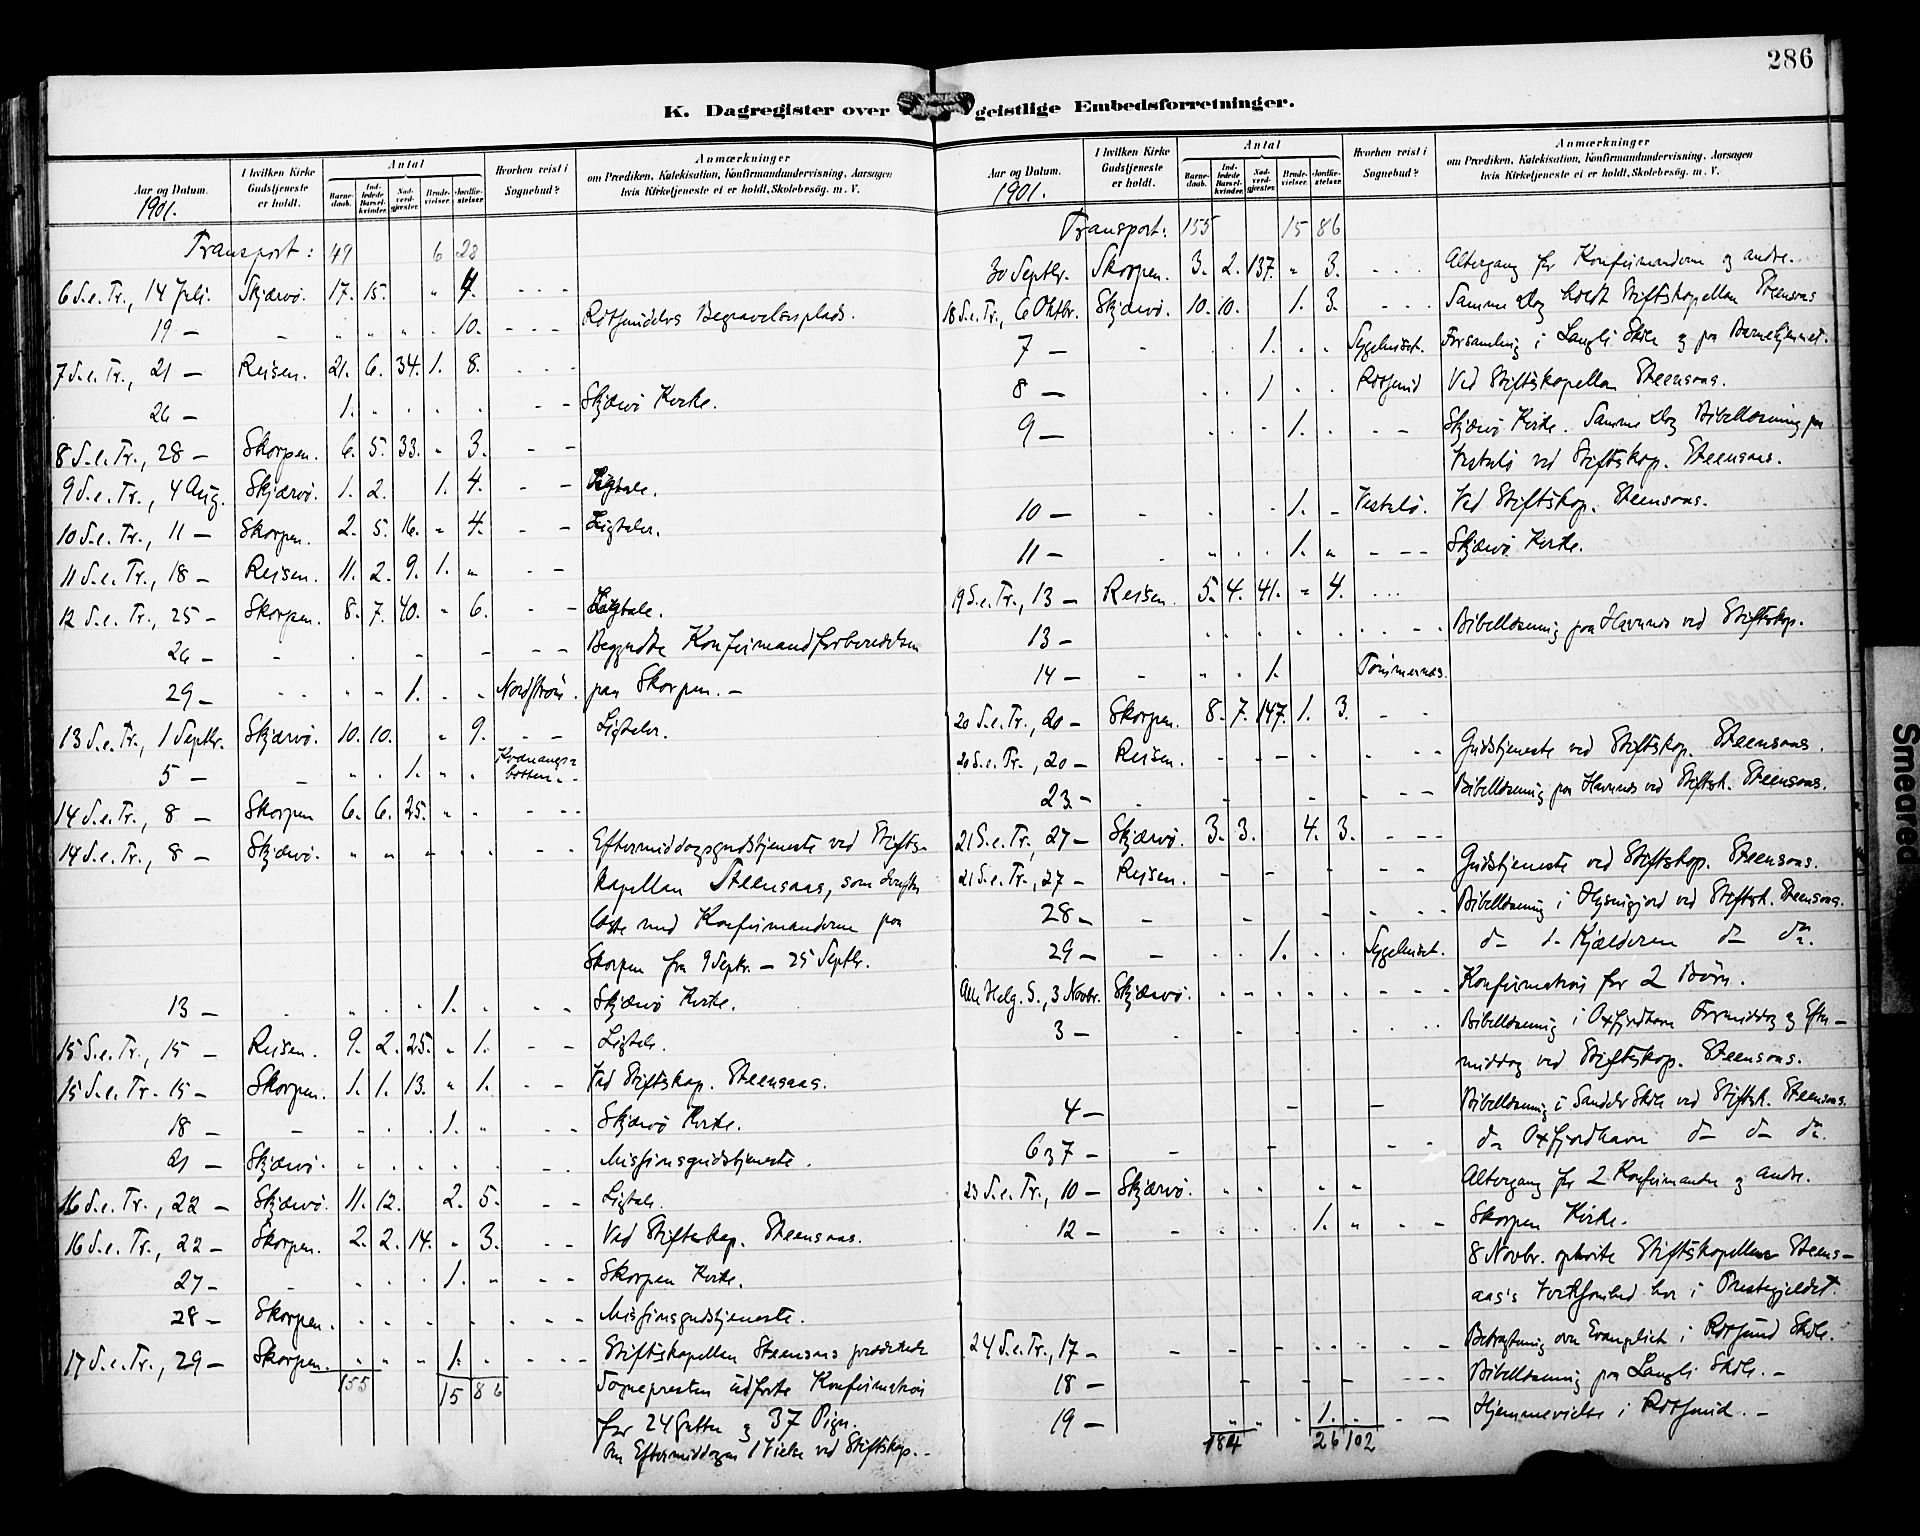 286
K. Dagregister over geistlige Embedsforretninger.
Aar og Datum. I hvilken Kirke Gudstjeneste er holdt. Antal Barne-daab. Ind-ledede Barsel-kvinder. Nad-verd-gjæster. Brude-vielser. Jordfæ-stelser. Hvorhen reist i Sognebud? Anmærkninger
om Prædiken, Katekisation, Konfirmandundervisning, Aarsagen
hvis Kirketjeneste ei er holdt, Skolebesøg. m. V.
1901.
Transport: 49 6 28
6 S.e.Tr., 14 Juli. Skjærvö. 17. 15. " 4. - - -
19 — - " " " " 10. - - - Rotsundets Begravelsesplads.
7 S.e.Tr., 21 — Reisen. 21. 6. 34. 1. 8. - - -
26 — 1. " " " " - - Skjærvö Kirke.
8 S.e.Tr., 28 — Skorpen. 6. 5. 33. " 3. - -
9 S.e.Tr., 4 Aug. Skjærvö. 1. 2. 1. 4. - - Ligtale.
10 S.e.Tr., 11 — Skorpen. 2. 5. 16. " 4. - - Ligtaler.
11 S.e.Tr., 18 — Reisen. 11. 2. 9. 1. " - -
12 S.e.Tr., 25 — Skorpen. 8. 7. 40. " 6. - - Ligtale.
26 — - - - - - - Begyndte Konfirmandforberedelsen
29 — - - " " 1. " " Nordström. paa Skorpen. —
13 S.e.Tr., 1 Septbr. Skjærvö. 10. 10. " 9. - - Ligtaler.
5 — - " " 1. " " Kvænangs-
botten.
14 S.e.Tr., 8 — Skorpen 6. 6. 25. " " - - -
14 S.e.Tr., 8 — Skjærvö. " " " " " - - Eftermiddagsgudstjeneste ved Stifts-
kapellan Steensaas, som derefter
læste med Konfirmanderne paa
Skorpen fra 9 Septbr. — 25 Septbr.
13 — - " " " 1. " - - Skjærvö Kirke.
15 S.e.Tr., 15 — Reisen. 9. 2. 25. " 1. - - Ligtale.
15 S.e.Tr. 15 — Skorpen. 1. 1. 13. " 1. - - Ved Stiftskap. Steensaas.
18 — - " " " 1. " - - Skjærvö Kirke.
21 — Skjærvö. " " " " " - - Missionsgudstjeneste.
16 S.e.Tr., 22 — Skjærvö. 11. 12. 2. 5. - - Ligtale.
16 S.e.Tr., 22 — Skorpen. 2. 2. 14. " 3. - - Ved Stiftskap. Steensaas.
27 — - " " " 1. " - - Skorpen Kirke.
28 — Skorpen. " " " " " - - - Missionsgudstjeneste.
17 S.e.Tr., 29 — Skorpen. " " " 1. " - - - Stiftskapellan Steensaas prædikede
155 15 86 Sognepresten udförte Konfirmation
for 24 Gutter og 37 Piger.
Om Eftermiddagen 1 Vielse ved Stiftskap. —
Aar og Datum. I hvilken Kirke Gudstjeneste er holdt. Antal Barne-daab. Ind-ledede Barsel-kvinder. Nad-verd-gjæster. Brude-vielser. Jordfæ-stelser. Hvorhen reist i Sognebud? Anmærkninger
om Prædiken, Katekisation, Konfirmandundervisning, Aarsagen
hvis Kirketjeneste ei er holdt, Skolebesøg. m. V.
1901.
Transport: 155 15 86
30 Septbr. Skorpen. 3. 2. 137. " 3. - - - Altergang for Konfirmanderne og andre.
18 S.e.Tr., 6 Oktbr. Skjærvö. 10. 10. 1. 3. - - - Samme Dag holdt Stiftskapellan Steensaas
7 — - " " 1. " " Sygehuset. Forsamling i Langli Skole og paa Barnehjemmet.
8 — " " 1 " " Rotsund Ved Stiftskapellan Steensaas.
9 — " " " 1. " - - Skjærvö Kirke. Samme Dag Bibellæsning paa
ved Stiftskap. Steensaas.
10 — - " " 1. " Ved Stiftskap. Steensaas.
11 — - " " " 1. " - - - Skjærvö Kirke.
19 S.e.Tr., 13 — Reisen. 5. 4. 41. " 4. - - -
13 — " " " " " - - - Bibellæsning paa Havnnes ved Stiftskap.
14 — - " " " 1. Tömmernæs.
20 S.e.Tr., 20 — Skorpen. 8. 7. 147. 1. 3. - -
20 S.e.Tr., 20 — Reisen. - - - - - - - Gudstjeneste ved Stiftskap. Steensaas.
23 — - - - - - - Bibellæsning paa Havnnes ved Stiftsk. Steensaas.
21 S.e.Tr., 27 — Skjærvö. 3. 3. 4. 3. - - -
21 S.e.Tr., 27 — Reisen. - - - - - Gudstjeneste ved Stiftskap. Steensaas.
28 — - - - - - - Bibellæsning i ved Stiftsk. Steensaas.
29 — - " " 1. " " Sygehuset. do i Kjælderen do do.
Alle Helg. S., 3 Novbr. Skjærvö. " " " " " - - - Konfirmation for 2 Börn.
3 — - - - - - Bibellæsning i Oxfjordhavn Formiddag og Efter-
middag ved Stiftskap. Steensaas.
4 — - - Bibellæsning i Skole ved Stiftsk. Steensaas.
6 og 7 — - - - - do Oxfjordhavn do do do.
23 S.e.Tr., 10 — Skjærvö. " " " " Altergang for 2 Konfirmanter og andre.
12 — - - - 1. " - - Skorpen Kirke.
8 Novbr. ophörte Stiftskapellan Steens-
aas's Virksomhed her i Prestegjeldet.
24 S.e.Tr., 17 — - - - - - - - - Betragtning over Evangeliet i Rotsund Skole.
18 — - - - - - - Bibellæsning paa Langli Skole. —
19 — " " " 1. " - — Hjemmevielse i Rotsund. —
184 26 102
Smeared